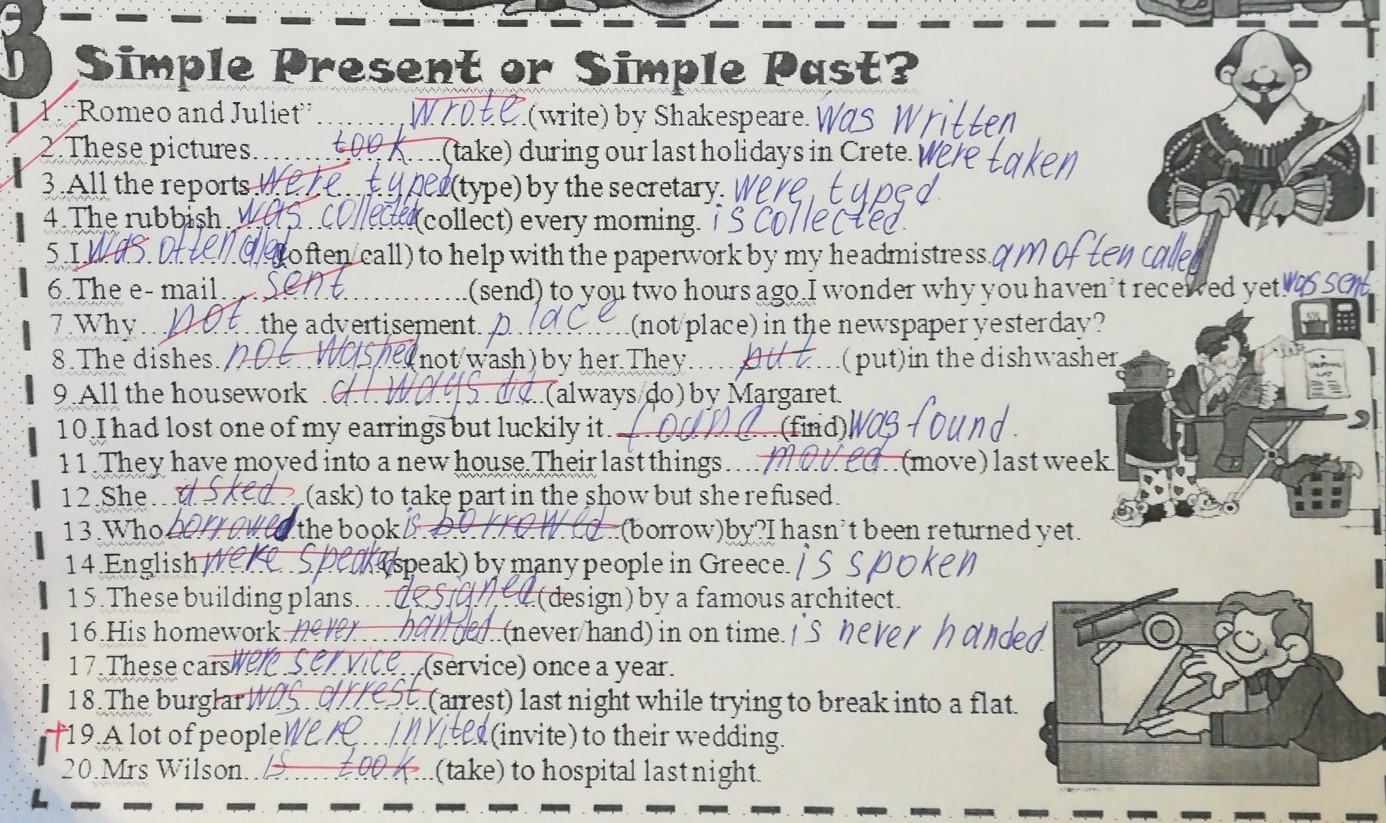 3
Simple Present or Simple Past?
1. "Romeo and Juliet" ......... wrote (write) by Shakespeare. was written
2. These pictures........ took ....(take) during our last holidays in Crete. were taken
3. All the reports were typed (type) by the secretary. were typed.
4. The rubbish was collected (collect) every morning. is collected.
5. I was often (often/call) to help with the paperwork by my headmistress. am often called
6. The e-mail.... sent ............(send) to you two hours ago. I wonder why you haven't received yet. was sent
7. Why... not the advertisement. place ......(not/place) in the newspaper yesterday?
8. The dishes. not washed (not/wash) by her. They...... put ...(put) in the dishwasher.
9. All the housework always did (always/do) by Margaret.
10. I had lost one of my earrings but luckily it. found ...(find) was found.
11. They have moved into a new house. Their last things.... moved ..(move) last week.
12. She... asked ..(ask) to take part in the show but she refused.
13. Who borrowed the book is borrowed (borrow) by? I hasn't been returned yet.
14. English were (speak) by many people in Greece. is spoken
15. These building plans.... designed (design) by a famous architect.
16. His homework never handed (never/hand) in on time. is never handed.
17. These cars were service..(service) once a year.
18. The burglar was arrest.(arrest) last night while trying to break into a flat.
+19. A lot of people were invited (invite) to their wedding.
20. Mrs Wilson.. is took ..(take) to hospital last night.